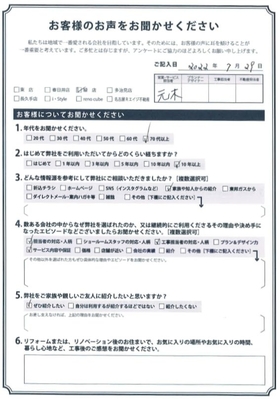 お客様のお声をお聞かせください
私たちは地域で一番愛される会社を目指しています。そのためには、お客様の声に耳を傾けることが
ご記入日 2022年 7月 29日
元木
お客様についてお聞かせください
1.年代をお聞かせください。
20代 30代 40代 50代 60代 70代以上
2.はじめて弊社をご利用いただいてからどのくらい経ちますか?
はじめて 1年以内 3年以内 5年以内 10年以内 10年以上
3.どんな情報源を参考にして弊社にご相談いただきましたか?【複数選択可】
折込チラシ ホームページ SNS(インスタグラムなど) 家族や知人からの紹介 東邦ガスから
ダイレクトメール・案内ハガキ等 雑誌 その他(下欄にご記入ください)
4.数ある会社の中からなぜ弊社を選ばれたのか、又は継続的にご利用くださるその理由や決め手に
なったエピソードなどございましたらお聞かせください。【複数選択可】
担当者の対応・人柄 ショールームスタッフの対応・人柄 工事担当者の対応・人柄 プラン&デザイン力
サービス内容や保証 価格 店舗が近い 地元の業者 その他(下欄にご記入ください)
5.弊社をご家族や親しいご友人に紹介したいと思いますか?
ぜひ紹介したい 自分は利用するが紹介するほどではない 紹介したくない
6.リフォームまたは、リノベーション後のお住まいで、お気に入りの場所やお気に入りの時間、
暮らし心地など、工事後のご感想をお聞かせください。